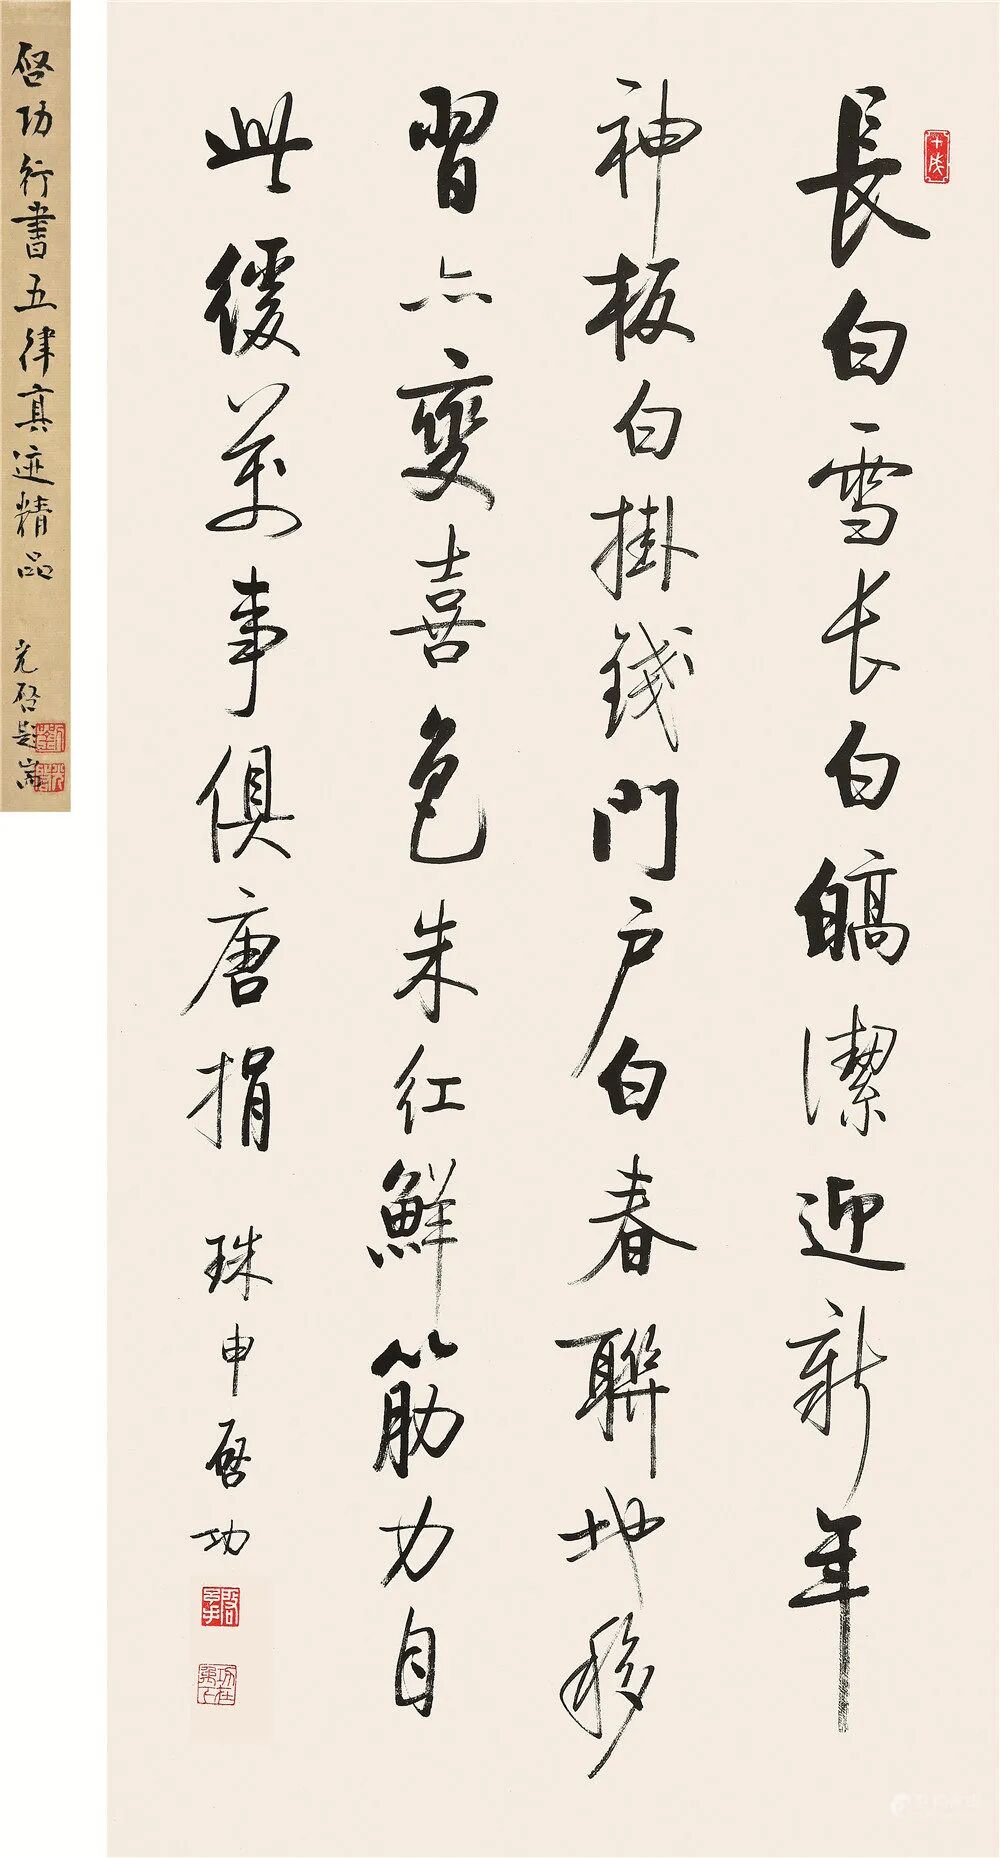 長白雪长白皜潔迎新年
神板白掛錢門户白春聯地移
習亦變喜色朱红鮮筋力自
此緩萬事俱唐捐 珠申啓功
啓功行書五律真迹精品
光啓題耑